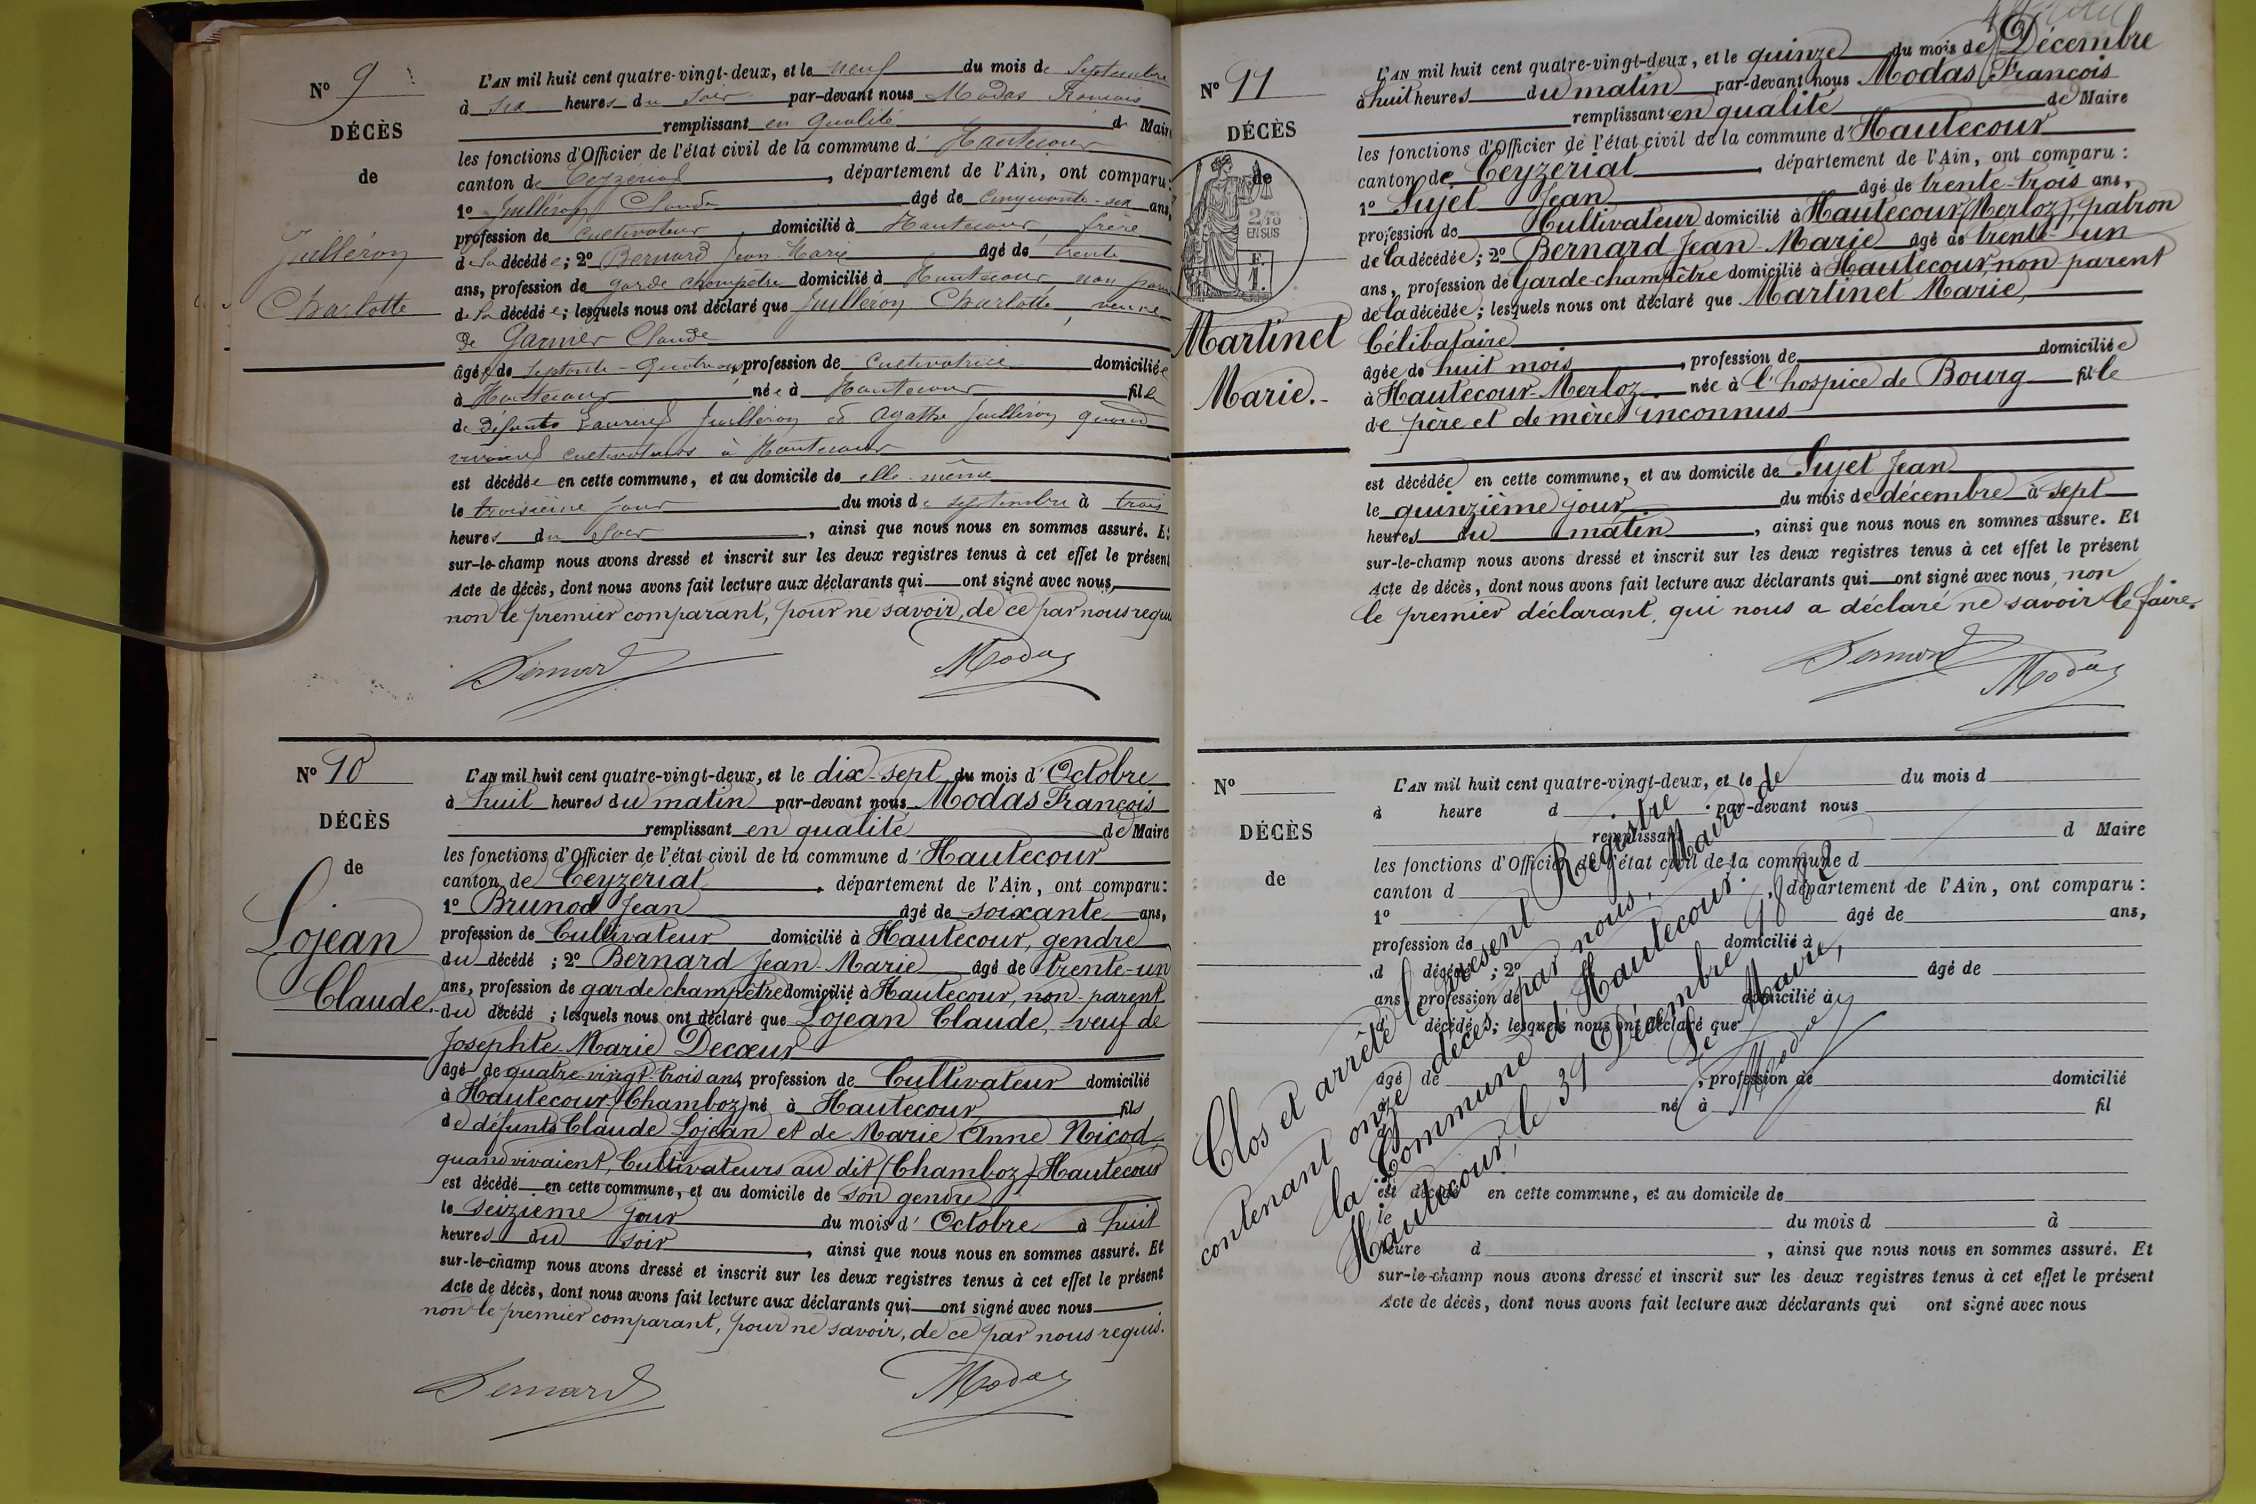 N° 9
DÉCÈS
de
Juilléron
Charlotte
L'AN mil huit cent quatre-vingt-deux, et le neuf du mois de Septembre
à six heures du soir par-devant nous Modas François
remplissant en qualité de Maire
les fonctions d'Officier de l'état civil de la commune d' Hautecour
canton de Ceyzériat, département de l'Ain, ont comparu:
1° Juilléron Claude âgé de cinquante-six ans,
profession de cultivateur, domicilié à Hautecour, frère
de la décédée; 2° Bernard Jean-Marie âgé de trente
ans, profession de garde champêtre domicilié à Hautecour non
de la décédée; lesquels nous ont déclaré que Juilléron Charlotte, veuve
de Garnier Claude
âgée de septante-quatre ans, profession de cultivatrice domiciliée
à Hautecour née à Hautecour fille
de défunts Laurent Juilléron et Agathe Juilléron quand
vivaient cultivateurs à Hautecour
est décédée en cette commune, et au domicile de elle-même
le troisième jour du mois de septembre à trois
heures du soir, ainsi que nous nous en sommes assuré. Et
sur-le-champ nous avons dressé et inscrit sur les deux registres tenus à cet effet le présent
Acte de décès, dont nous avons fait lecture aux déclarants qui ont signé avec nous,
non le premier comparant, pour ne savoir, de ce par nous requis
Bernard Modas
N° 10
DÉCÈS
de
Lojean
Claude.
L'AN mil huit cent quatre-vingt-deux, et le dix-sept du mois d'Octobre
à huit heures du matin par-devant nous Modas François
remplissant en qualité de Maire
les fonctions d'Officier de l'état civil de la commune d'Hautecour
canton de Ceyzériat, département de l'Ain, ont comparu:
1° Brunod Jean âgé de soixante ans,
profession de Cultivateur domicilié à Hautecour, gendre
du décédé; 2° Bernard Jean-Marie âgé de trente-un
ans, profession de garde champêtre domicilié à Hautecour, non-parent
du décédé; lesquels nous ont déclaré que Lojean Claude, veuf de
Josephte Marie Decœur
âgé de quatre-vingt-trois ans, profession de Cultivateur domicilié
à Hautecour (Chamboz) né à Hautecour fils
de défunts Claude Lojean et de Marie Anne Nicod,
quand vivaient, Cultivateurs au dit (Chamboz) Hautecour
est décédé en cette commune, et au domicile de son gendre
le seizième jour du mois d'Octobre à huit
heures du soir, ainsi que nous nous en sommes assuré. Et
sur-le-champ nous avons dressé et inscrit sur les deux registres tenus à cet effet le présent
Acte de décès, dont nous avons fait lecture aux déclarants qui ont signé avec nous
non le premier comparant, pour ne savoir, de ce par nous requis.
Bernard Modas
N° 11
DÉCÈS
de
2/10 EN SUS
F. 1.
Martinet
Marie.-
L'AN mil huit cent quatre-vingt-deux, et le quinze du mois de Décembre
à huit heures du matin par-devant nous Modas François
remplissant en qualité de Maire
les fonctions d'Officier de l'état civil de la commune d'Hautecour
canton de Ceyzériat, département de l'Ain, ont comparu:
1° Sujet Jean âgé de trente-trois ans,
profession de Cultivateur domicilié à Hautecour (Merloz), patron
de la décédée; 2° Bernard Jean-Marie âgé de trente-un
ans, profession de garde-champêtre domicilié à Hautecour, non-parent
de la décédée; lesquels nous ont déclaré que Martinet Marie,
Célibataire
âgée de huit mois, profession de domiciliée
à Hautecour-Merloz née à l'hospice de Bourg fille
de père et de mère inconnus
est décédée en cette commune, et au domicile de Sujet Jean
le quinzième jour du mois de décembre à sept
heures du matin, ainsi que nous nous en sommes assuré. Et
sur-le-champ nous avons dressé et inscrit sur les deux registres tenus à cet effet le présent
Acte de décès, dont nous avons fait lecture aux déclarants qui ont signé avec nous, non
le premier déclarant, qui nous a déclaré ne savoir le faire.
Bernard
Modas
N°
DÉCÈS
de
L'AN mil huit cent quatre-vingt-deux, et le du mois d
à heure d par-devant nous
remplissant d Maire
les fonctions d'Officier de l'état civil de la commune d
canton d, département de l'Ain, ont comparu:
1° âgé de ans,
profession de domicilié à
d décédé; 2° âgé de
ans, profession de domicilié à
d décédé; lesquels nous ont déclaré que
âgé de, profession de domicilié
à né à fil
d
est décédé en cette commune, et au domicile de
le du mois d à
heure d, ainsi que nous nous en sommes assuré. Et
sur-le-champ nous avons dressé et inscrit sur les deux registres tenus à cet effet le présent
Acte de décès, dont nous avons fait lecture aux déclarants qui ont signé avec nous
Clos et arrêté le présent Registre de
contenant onze décès, par nous, Maire de
la Commune d'Hautecour.
Hautecour, le 31 Décembre 1882
Le Maire,
Modas